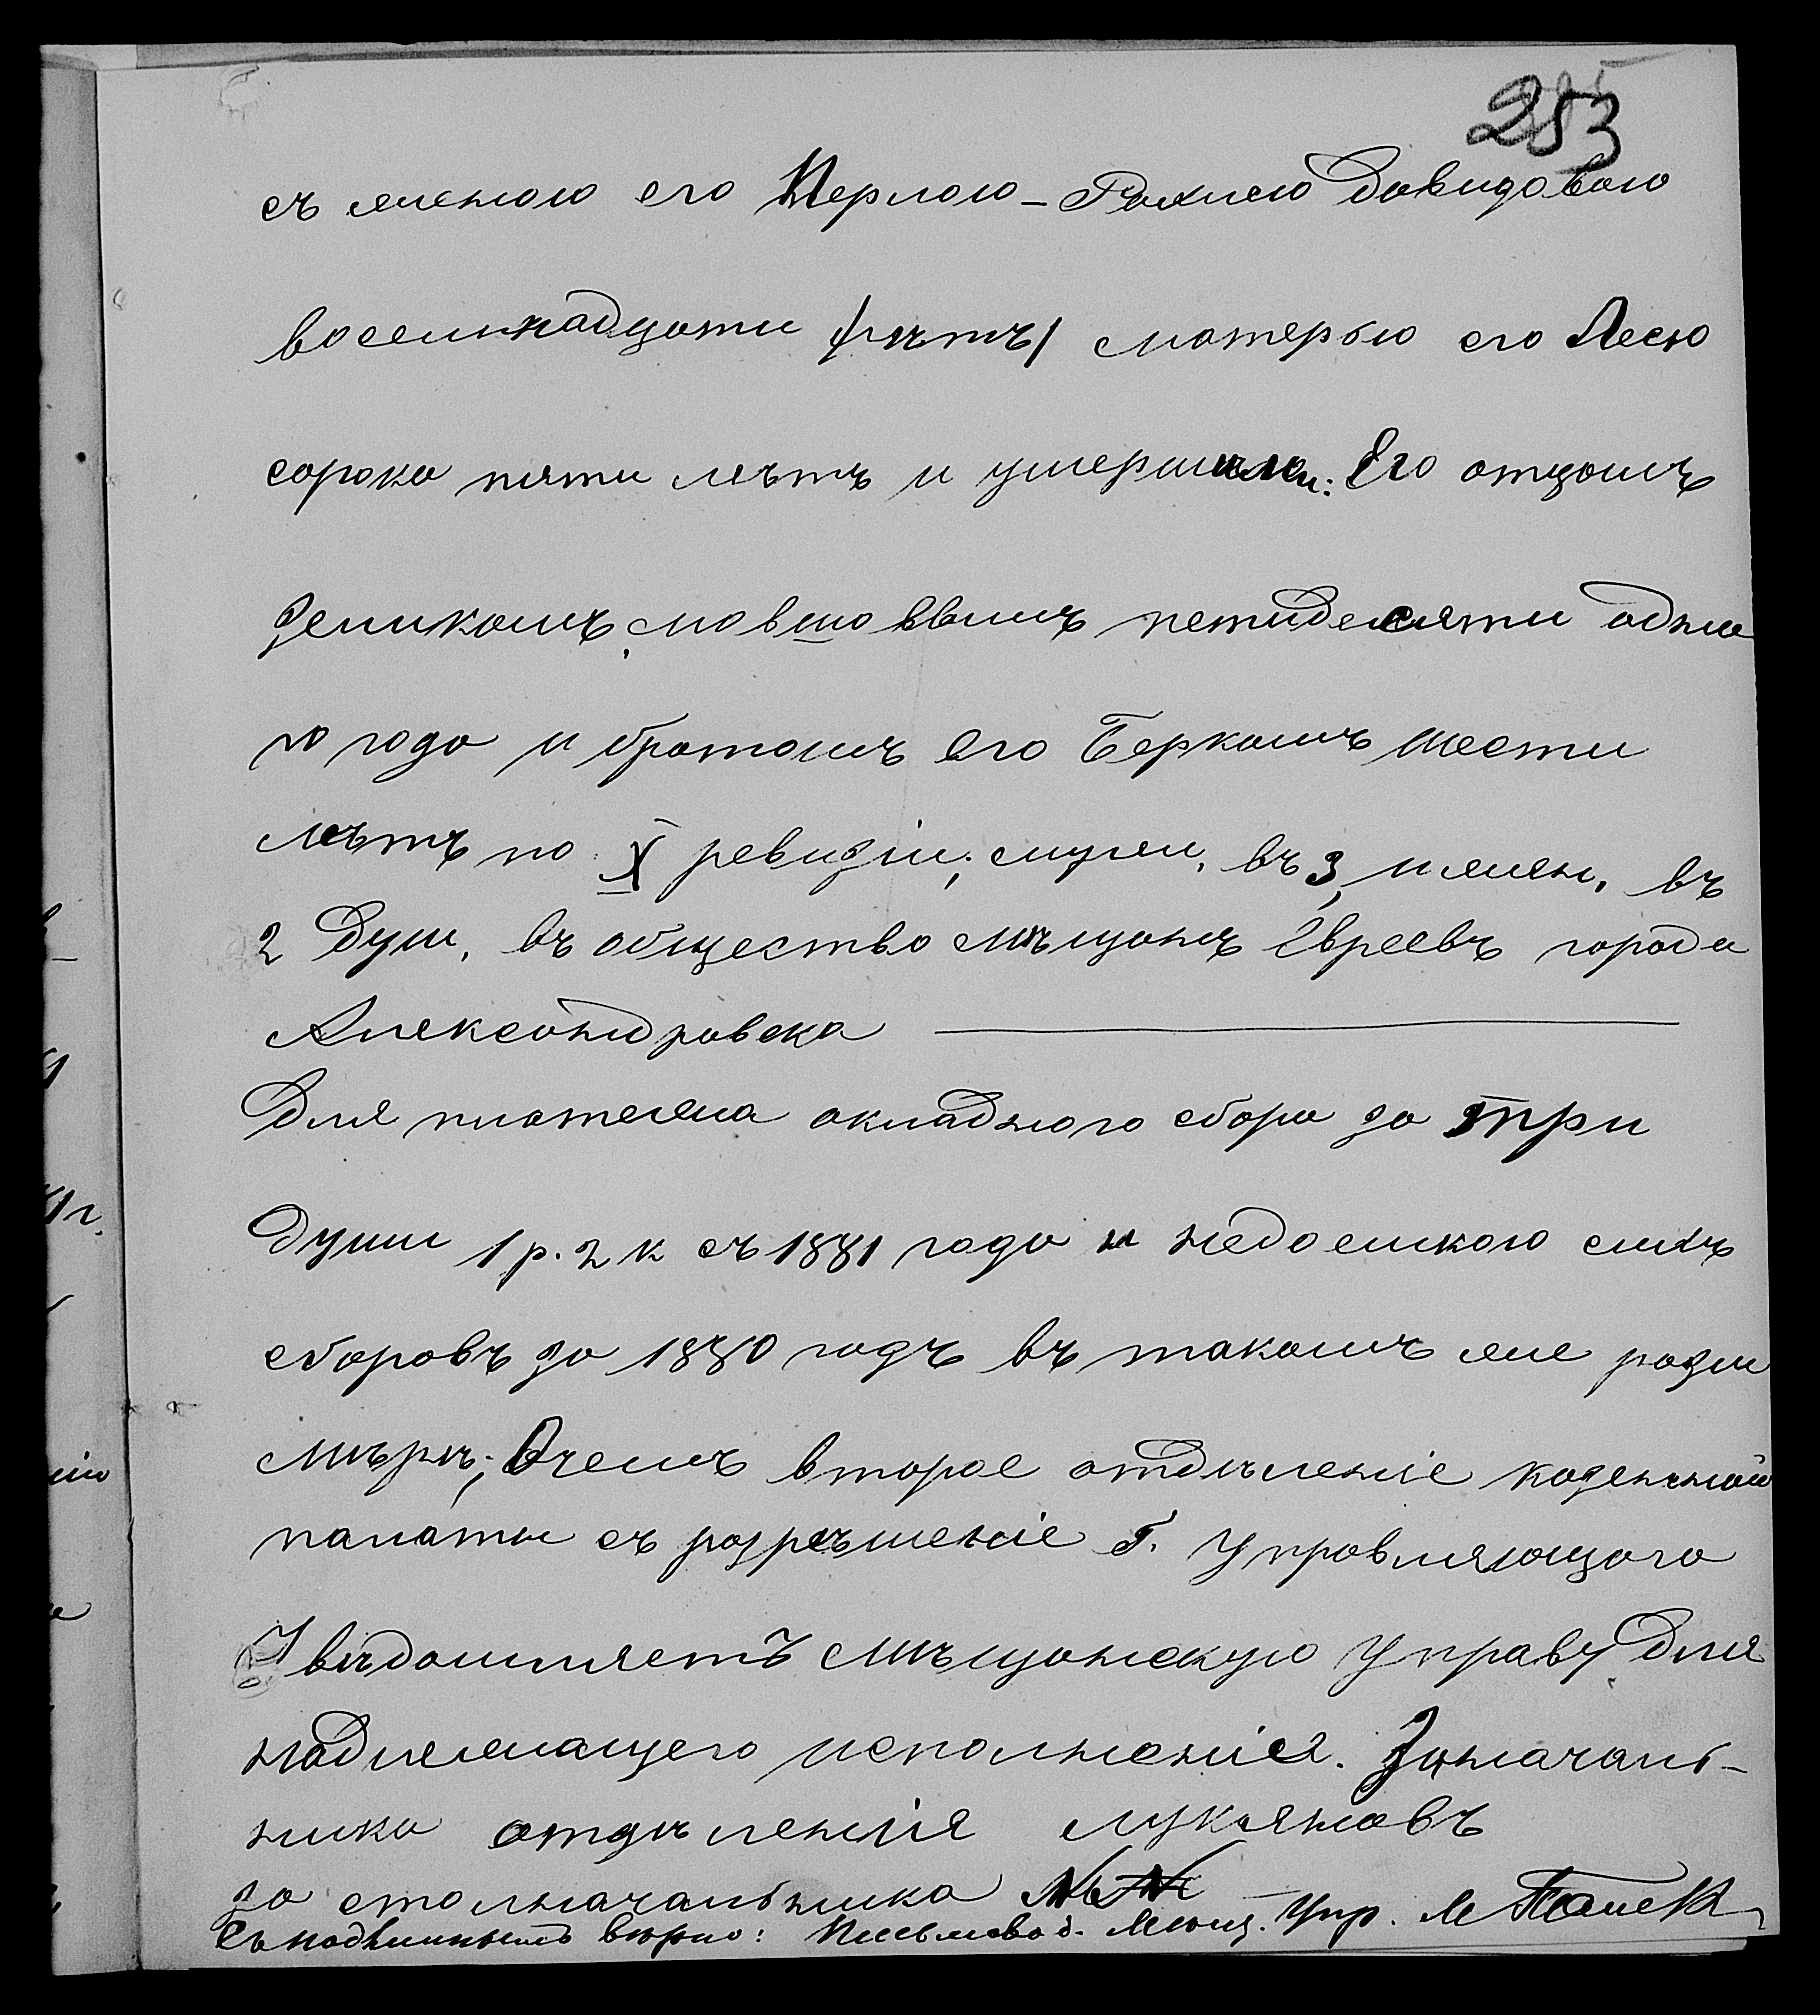 253
съ женою его Перлою-Рахлею Давидовою
восемнадцати /лѣтъ/ матерью его Песю
сорока пяти лѣтъ и умершими: Его отцомъ
Зеликомъ Мовшовымъ петидесяти одно
го года и братомъ его Беркомъ шести
лѣтъ по X ревизіи; мужеи, въ 3, и жен, въ
2 душ, въ общество мѣщанъ Евреевъ города
Александровска
Для платежа окладного сбора за три
души 1 р. 2 к съ 1881 года и недоимкою сихъ
сборовъ за 1880 годъ въ такомъ же разм
мѣрѣ; Очемъ второе отдѣленіе казенной
палаты съ разрѣшеніе Г. Управляющаго
Увѣдомляетъ мѣщанскую Управу для
надлежащего исполненія. За началь-
ника отдѣленія Лукяновъ
за столначальника
Съ подлиннымъ вѣрно: Письмовод. Мѣщ. Упр. М